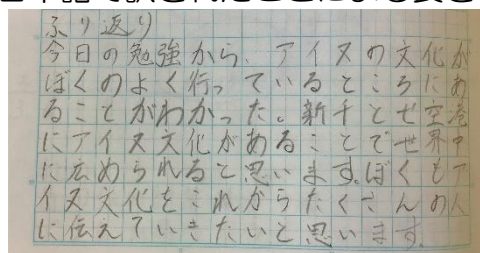 ふり返り
今日の勉強から、アイヌの文化が
ぼくのよく行っているところにあ
ることがわかった。新千とせ空港
にアイヌ文化があることで世界中
に広められると思います。ぼくもア
イヌ文化をこれからたくさんの人
に伝えていきたいと思います。